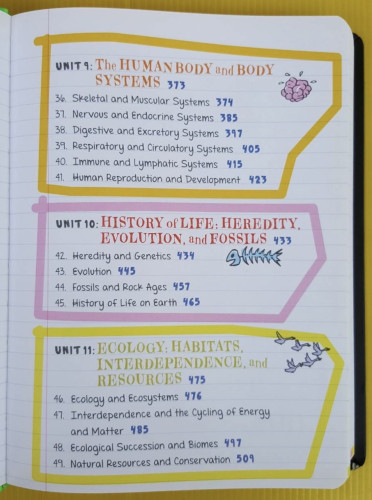 UNIT 9: The HUMAN BODY and BODY
SYSTEMS 373
36. Skeletal and Muscular Systems 374
37. Nervous and Endocrine Systems 385
38. Digestive and Excretory Systems 397
39. Respiratory and Circulatory Systems 405
40. Immune and Lymphatic Systems 415
41. Human Reproduction and Development 423
UNIT 10: HISTORY of LIFE: HEREDITY,
EVOLUTION, and FOSSILS 433
42. Heredity and Genetics 434
43. Evolution 445
44. Fossils and Rock Ages 457
45. History of Life on Earth 465
UNIT 11: ECOLOGY: HABITATS,
INTERDEPENDENCE, and
RESOURCES 475
46. Ecology and Ecosystems 476
47. Interdependence and the Cycling of Energy
and Matter 485
48. Ecological Succession and Biomes 497
49. Natural Resources and Conservation 509